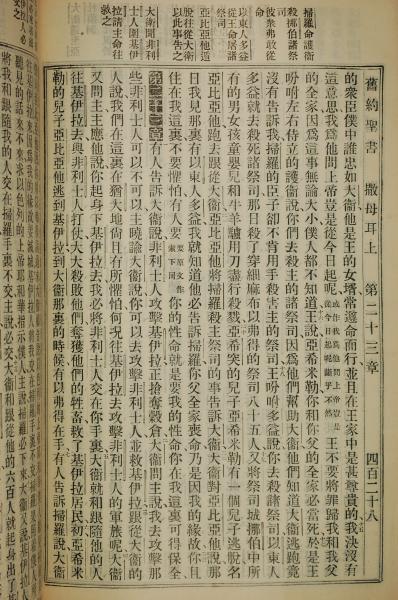 舊約聖書 撒母耳上 第二十三章 四百二十八
掃羅命護衞
殺挪伯諸祭
司
彼衆弗敢從
命
以東人多益
從王命屠諸
祭司
亞比亞他逃
脫往從大衞
以此事告之
大衞聞非利
士人圍基伊
拉請主命往
救之
的衆臣僕中誰忠如大衞他是王的女壻常遵命而行並且在王家中是甚尊貴的我決沒有
這意思我爲他問上帝豈是從今日起呢 或作我爲他問上帝豈是從今日起呢斷乎不然 王不要將罪歸我和我父
的全家因爲這事無論大小僕人都不知道王說亞希米勒你和你的父全家必當死於是王
吩咐左右侍立的護衞說你們去殺主的諸祭司因爲他們幫助大衞他們知道大衞逃跑竟
沒有吿訴我掃羅的臣子卻不肯用手殺害主的祭司王吩咐多益說你去殺諸祭司以東人
多益就去殺死諸祭司那日殺了穿細麻布以弗得的祭司八十五人又將祭司城挪伯中所
有的男女孩童嬰兒和牛羊驢用刀盡行殺戮亞希突的兒子亞希米勒有一個兒子逃脫名
亞比亞他跑去跟從大衞亞比亞他將掃羅殺主祭司的事吿訴大衞大衞對亞比亞他說那
日我見那裏有以東人多益我就知道他必吿訴掃羅你父全家喪命乃是因我的緣故你且
住在我這裏不要懼怕有人要 原文作索下同 你的性命就是要我的性命你在我這裏可得保全
第二十三章 有人吿訴大衞說非利士人攻擊基伊拉正搶奪穀倉大衞問主說我去攻擊那
些非利士人可以不可以主曉諭大衞說你可以去攻擊非利士人並救基伊拉跟從大衞的
人說我們在這裏在猶大地尙且有所懼怕何況往基伊拉去攻擊非利士人的軍旅呢大衞
又問主主應他說你起身下基伊拉去我必將非利士人交在你手裏大衞就和跟隨他的人
往基伊拉去與非利士人打仗大大殺敗他們奪獲他們的牲畜救了基伊拉居民初亞希米
勒的兒子亞比亞他逃到基伊拉到大衞那裏的時候有以弗得在手有人吿訴掃羅說大衞
將我和跟隨我的人交在掃羅手裏不交主說必交大衞和跟從他的六百人就起身出了